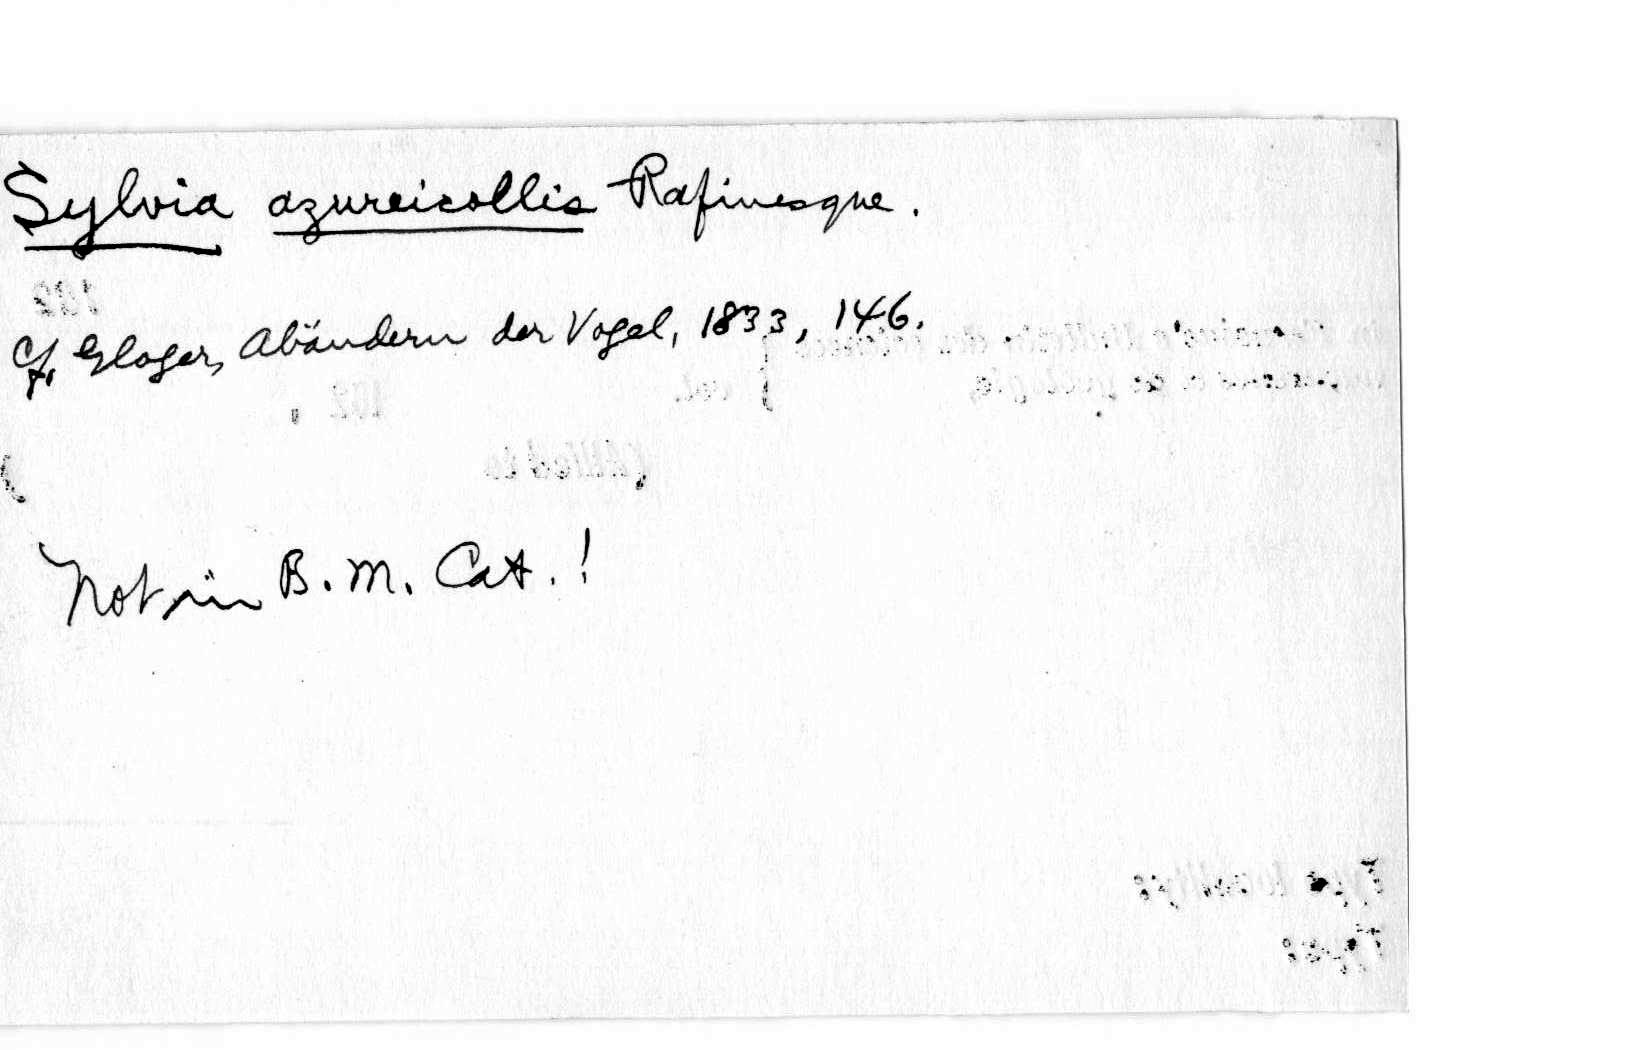 Sylvia azureicollis Rafinesque.
cf. Gloger, Abändern der Vogel, 1833, 146.
Not in B.M. Cat.!